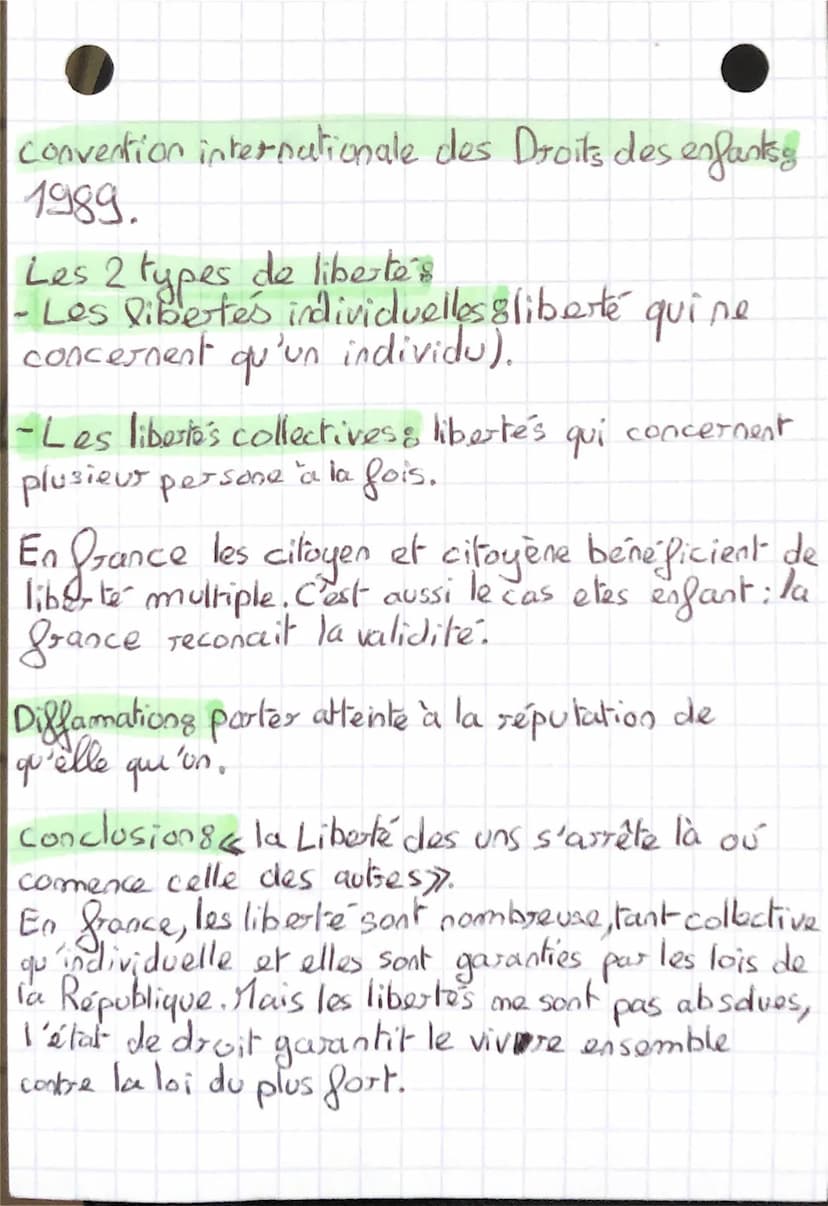 Convention internationale des Droits des enfants:
1989.
Les 2 types de libertés:
- Les libertés individuelles: (liberté qui ne
concernent qu'un individu).
- Les libertés collectives: libertés qui concernent
plusieur persone à la fois.
En france les citoyen et citoyène bénéficient de
liberté multiple. C'est aussi le cas etes enfant : la
france reconait la validité.
Diffamation: porter atteinte à la réputation de
qu'elle qu'un.
Conclusion: « la Liberté des uns s'arrête là où
comence celle des autres ».
En france, les liberté sont nombreuse, tant collective
qu'individuelle et elles sont garanties par les lois de
la République. Mais les libertés ne sont pas absolues,
l'état de droit garantit le vivre ensemble
contre la loi du plus fort.